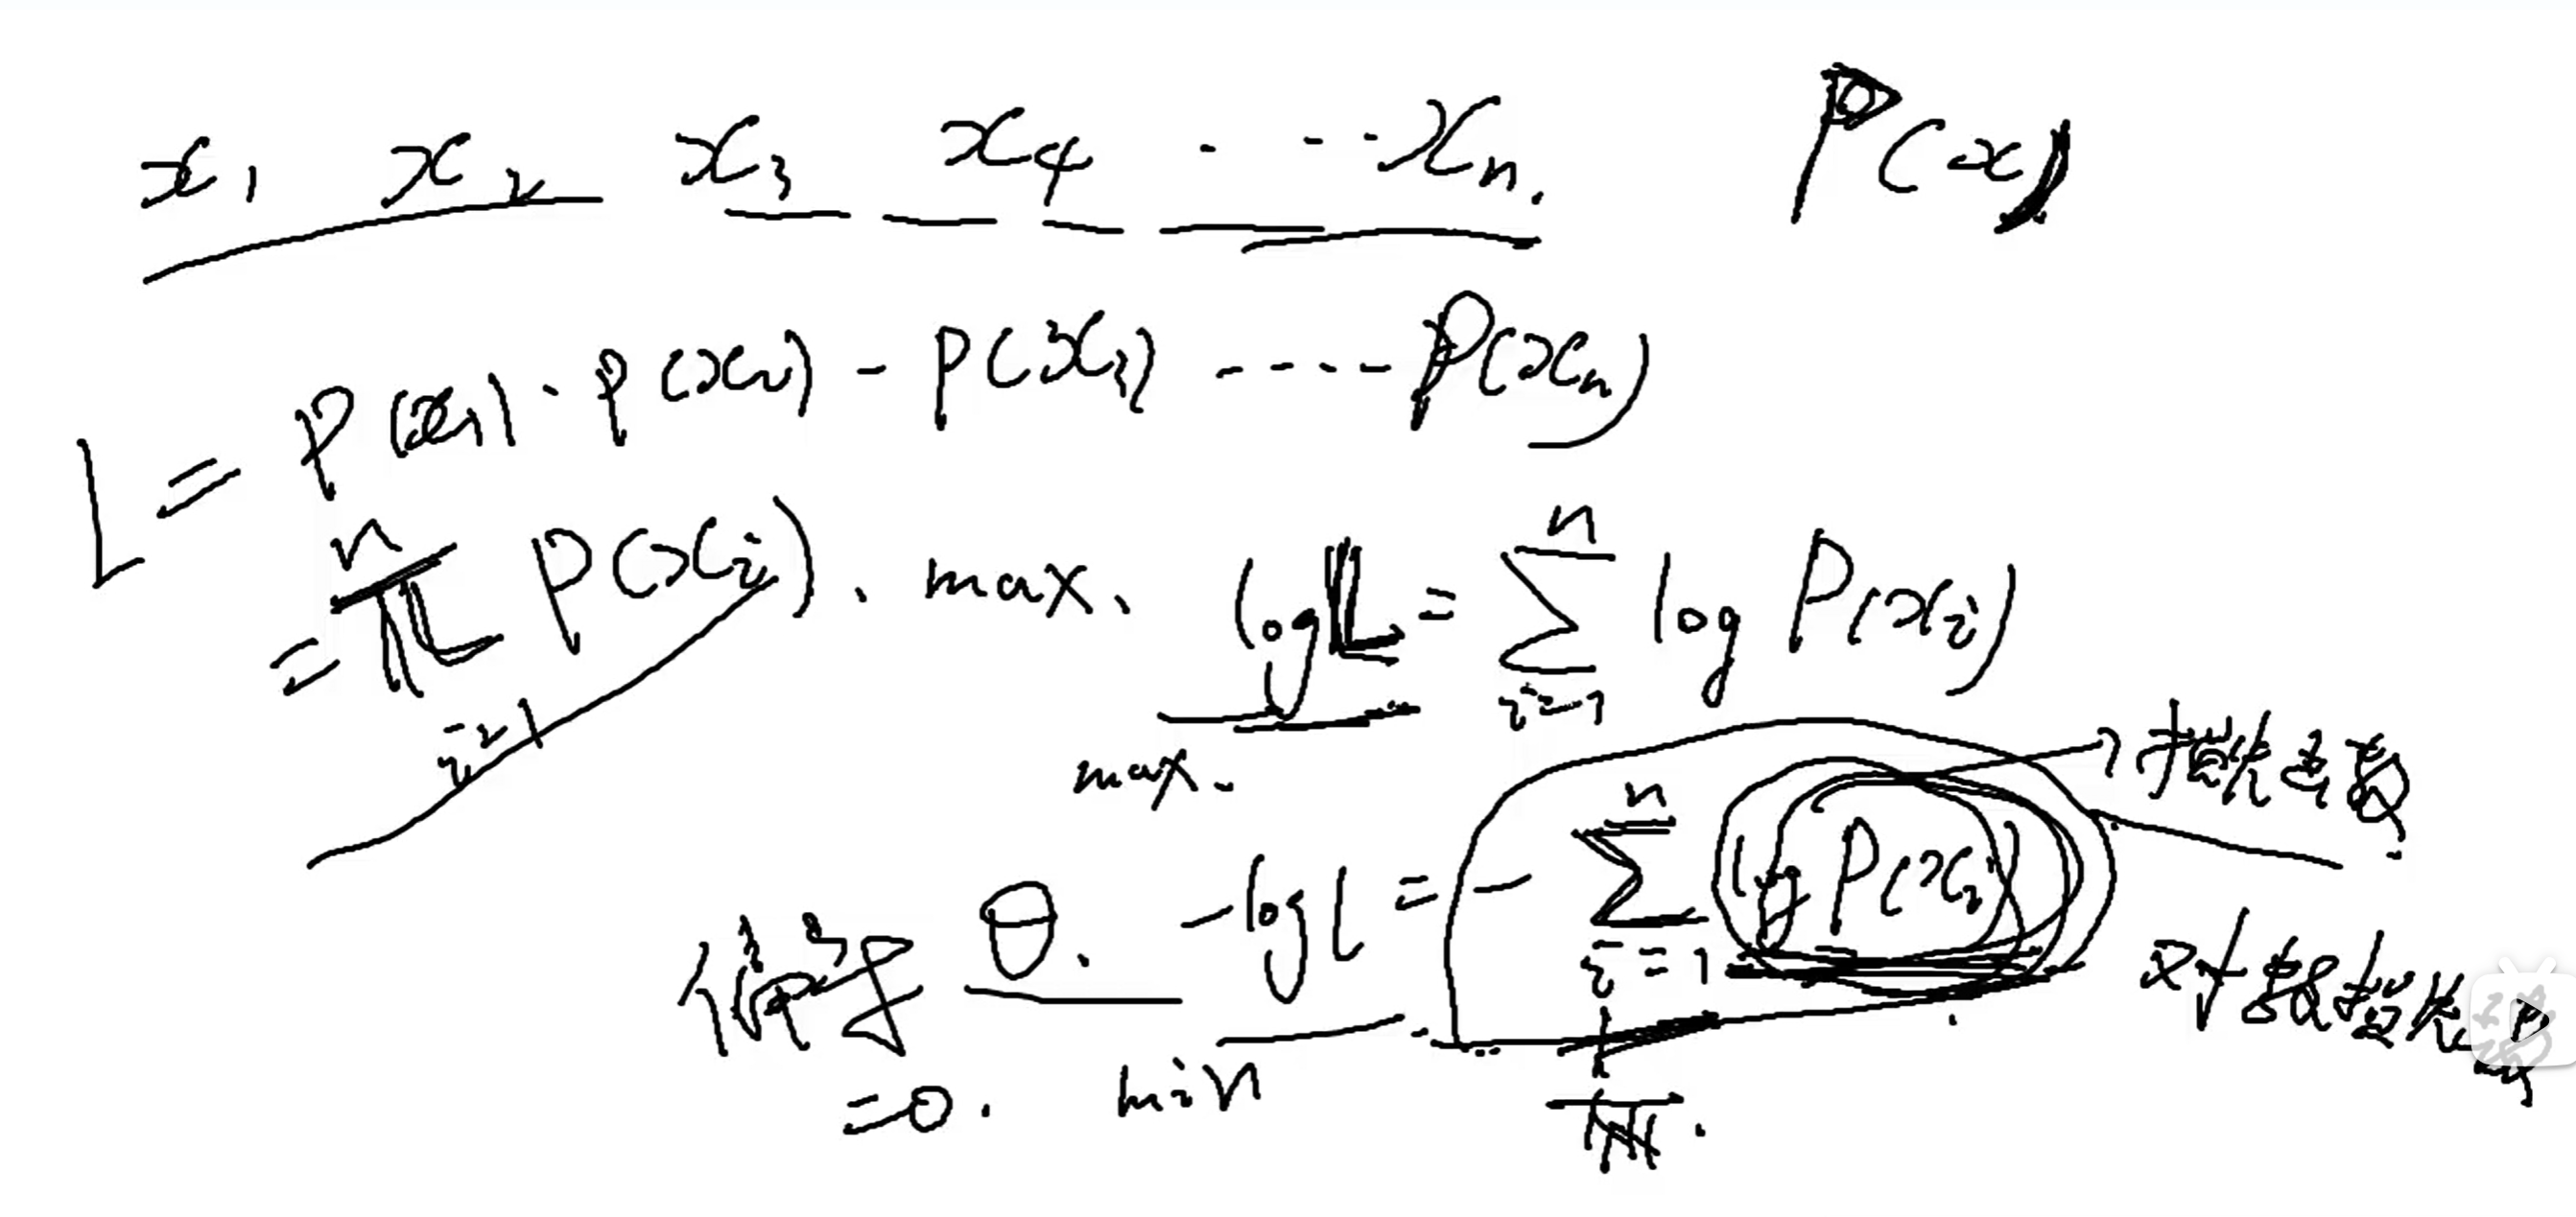 x₁ x₂ x₃ x₄ · - - · xₙ. P(x)
L = P(x₁) · P(x₂) - P(x₃) - - - - - P(xₙ)
= ∏ⁿᵢ₌₁ P(xᵢ). max. log L = ∑ⁿᵢ₌₁ log P(xᵢ)
max.
损失函数
偏导 θ. -log L = - ∑ⁿᵢ₌₁ log P(xᵢ)
对数损失
=0. min